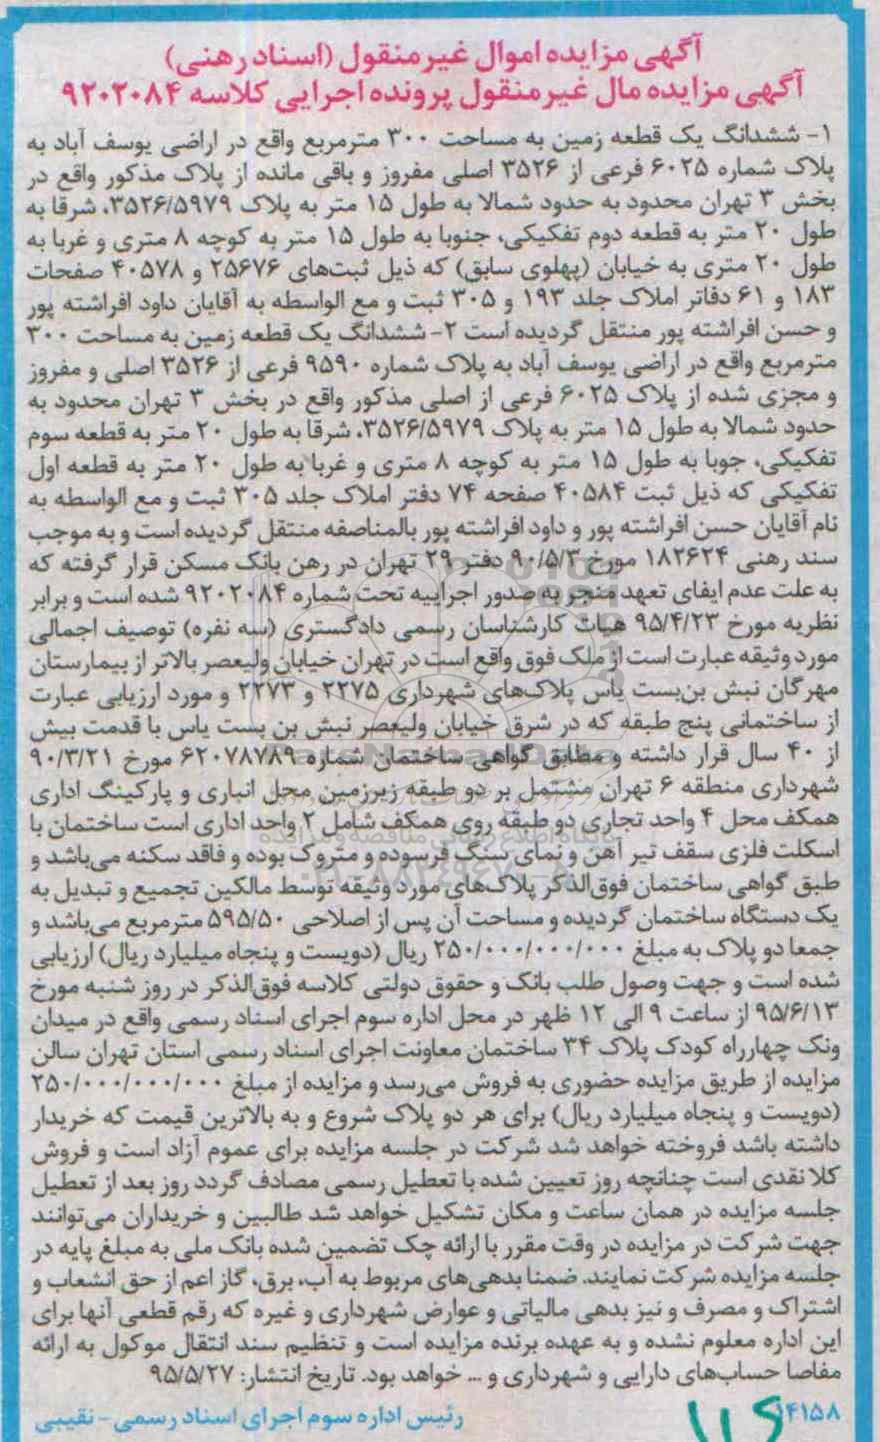 آگهی مزایده اموال غیرمنقول (اسناد رهنی)
آگهی مزایده مال غیرمنقول پرونده اجرایی کلاسه ۹۲۰۲۰۸۴
۱- ششدانگ یک قطعه زمین به مساحت ۳۰۰ مترمربع واقع در اراضی یوسف آباد به
پلاک شماره ۶۰۲۵ فرعی از ۳۵۲۶ اصلی مفروز و باقی مانده از پلاک مذکور واقع در
بخش ۳ تهران محدود به حدود شمالا به طول ۱۵ متر به پلاک ۳۵۲۶/۵۹۷۹، شرقا به
طول ۲۰ متر به قطعه دوم تفکیکی، جنوبا به طول ۱۵ متر به کوچه ۸ متری و غربا به
طول ۲۰ متری به خیابان (پهلوی سابق) که ذیل ثبت‌های ۲۵۶۷۶ و ۴۰۵۷۸ صفحات
۱۸۳ و ۶۱ دفاتر املاک جلد ۱۹۳ و ۳۰۵ ثبت و مع الواسطه به آقایان داود افراشته پور
و حسن افراشته پور منتقل گردیده است ۲- ششدانگ یک قطعه زمین به مساحت ۳۰۰
مترمربع واقع در اراضی یوسف آباد به پلاک شماره ۹۵۹۰ فرعی از ۳۵۲۶ اصلی و مفروز
و مجزی شده از پلاک ۶۰۲۵ فرعی از اصلی مذکور واقع در بخش ۳ تهران محدود به
حدود شمالا به طول ۱۵ متر به پلاک ۳۵۲۶/۵۹۷۹، شرقا به طول ۲۰ متر به قطعه سوم
تفکیکی، جوبا به طول ۱۵ متر به کوچه ۸ متری و غربا به طول ۲۰ متر به قطعه اول
تفکیکی که ذیل ثبت ۴۰۵۸۴ صفحه ۷۴ دفتر املاک جلد ۳۰۵ ثبت و مع الواسطه به
نام آقایان حسن افراشته پور و داود افراشته پور بالمناصفه منتقل گردیده است و به موجب
سند رهنی ۱۸۲۶۲۴ مورخ ۹۰/۵/۳ دفتر ۲۹ تهران در رهن بانک مسکن قرار گرفته که
به علت عدم ایفای تعهد منجر به صدور اجراییه تحت شماره ۹۲۰۲۰۸۴ شده است و برابر
نظریه مورخ ۹۵/۴/۲۳ هیات کارشناسان رسمی دادگستری (سه نفره) توصیف اجمالی
مورد وثیقه عبارت است از ملک فوق واقع است در تهران خیابان ولیعصر بالاتر از بیمارستان
مهرگان نبش بن‌بست یاس پلاک‌های شهرداری ۲۲۷۵ و ۲۲۷۳ و مورد ارزیابی عبارت
از ساختمانی پنج طبقه که در شرق خیابان ولیعصر نبش بن بست یاس با قدمت بیش
از ۴۰ سال قرار داشته و مطابق گواهی ساختمان شماره ۶۲۰۷۸۷۸۹ مورخ ۹۰/۳/۲۱
شهرداری منطقه ۶ تهران مشتمل بر دو طبقه زیرزمین محل انباری و پارکینگ اداری
همکف محل ۴ واحد تجاری دو طبقه روی همکف شامل ۲ واحد اداری است ساختمان با
اسکلت فلزی سقف تیر آهن و نمای سنگ فرسوده و متروک بوده و فاقد سکنه می‌باشد و
طبق گواهی ساختمان فوق‌الذکر پلاک‌های مورد وثیقه توسط مالکین تجمیع و تبدیل به
یک دستگاه ساختمان گردیده و مساحت آن پس از اصلاحی ۵۹۵/۵۰ مترمربع می‌باشد و
جمعا دو پلاک به مبلغ ۲۵۰/۰۰۰/۰۰۰/۰۰۰ ریال (دویست و پنجاه میلیارد ریال) ارزیابی
شده است و جهت وصول طلب بانک و حقوق دولتی کلاسه فوق‌الذکر در روز شنبه مورخ
۹۵/۶/۱۳ از ساعت ۹ الی ۱۲ ظهر در محل اداره سوم اجرای اسناد رسمی واقع در میدان
ونک چهارراه کودک پلاک ۳۴ ساختمان معاونت اجرای اسناد رسمی استان تهران سالن
مزایده از طریق مزایده حضوری به فروش می‌رسد و مزایده از مبلغ ۲۵۰/۰۰۰/۰۰۰/۰۰۰
(دویست و پنجاه میلیارد ریال) برای هر دو پلاک شروع و به بالاترین قیمت که خریدار
داشته باشد فروخته خواهد شد شرکت در جلسه مزایده برای عموم آزاد است و فروش
کلا نقدی است چنانچه روز تعیین شده با تعطیل رسمی مصادف گردد روز بعد از تعطیل
جلسه مزایده در همان ساعت و مکان تشکیل خواهد شد طالبین و خریداران می‌توانند
جهت شرکت در مزایده در وقت مقرر با ارائه چک تضمین شده بانک ملی به مبلغ پایه در
جلسه مزایده شرکت نمایند. ضمنا بدهی‌های مربوط به آب، برق، گاز اعم از حق انشعاب و
اشتراک و مصرف و نیز بدهی مالیاتی و عوارض شهرداری و غیره که رقم قطعی آنها برای
این اداره معلوم نشده و به عهده برنده مزایده است و تنظیم سند انتقال موکول به ارائه
مفاصا حساب‌های دارایی و شهرداری و ... خواهد بود. تاریخ انتشار: ۹۵/۵/۲۷
رئیس اداره سوم اجرای اسناد رسمی - نقیبی
۱۴۱۵۸